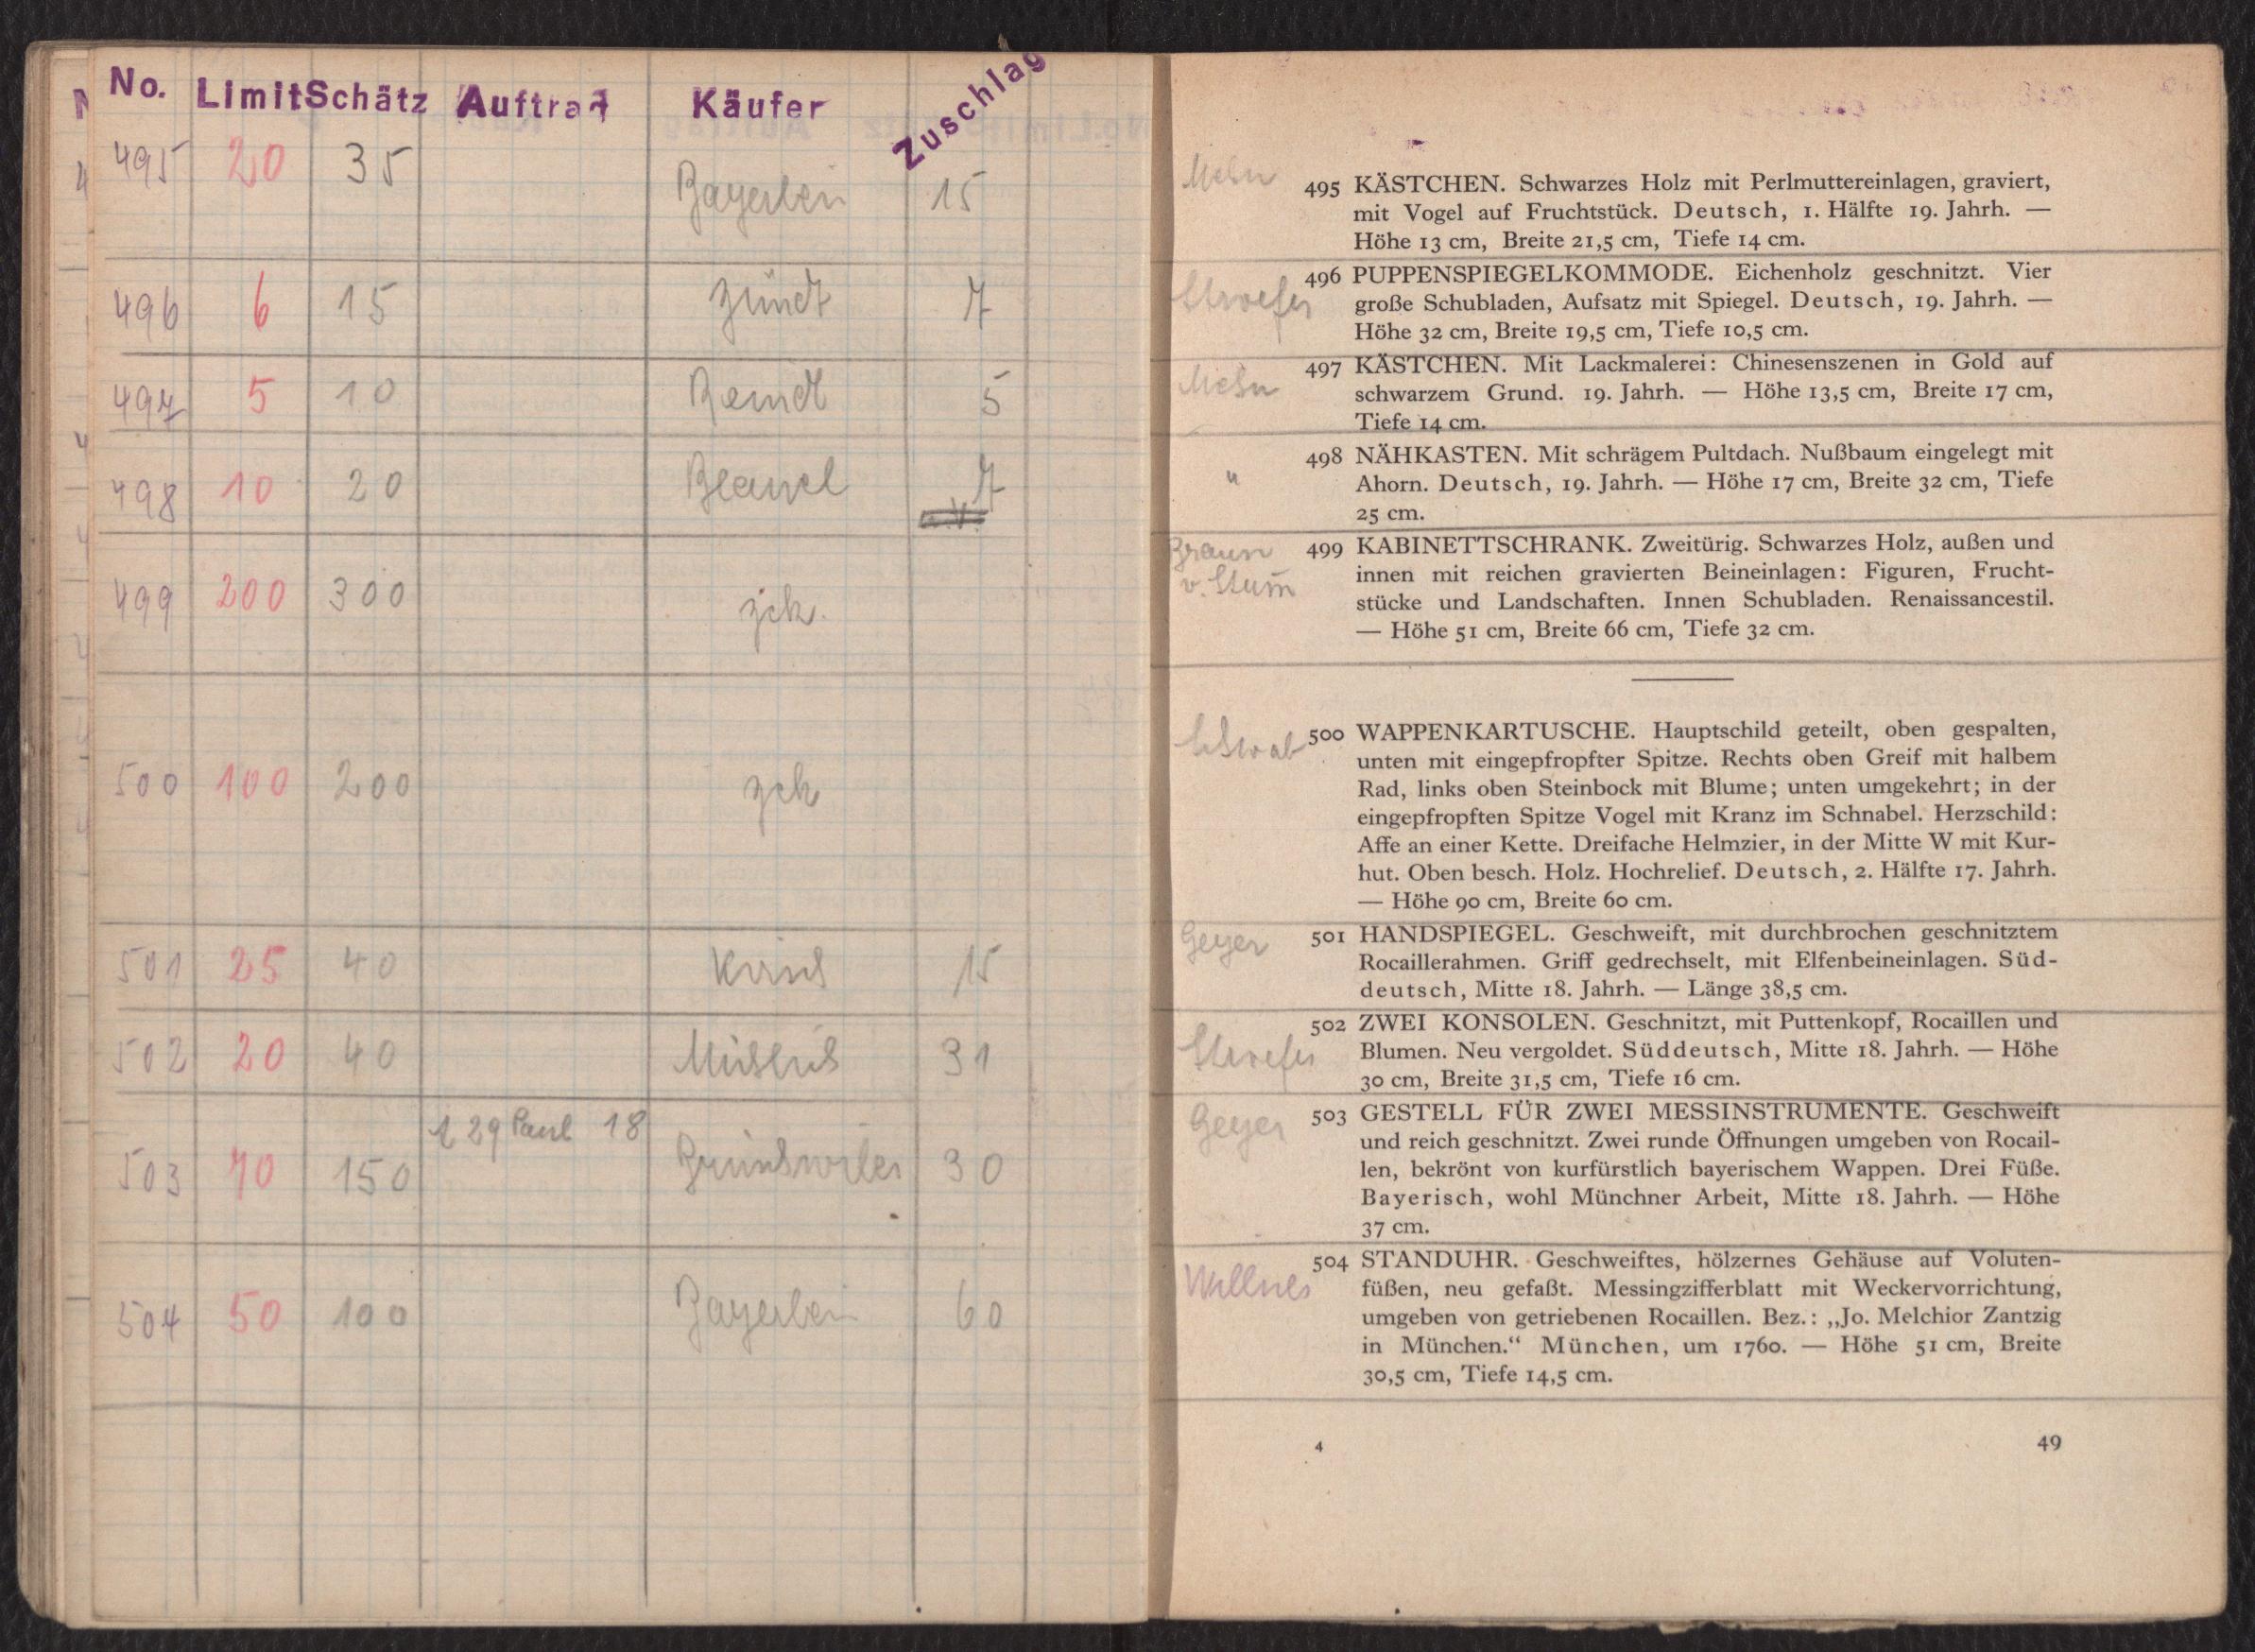 No. Limit Schätz Auftrag Käufer Zuschlag
495 20 35 Bayerlein 15
496 6 15 Zündt 7
497 5 10 Berndt 5
498 10 20 7
499 200 300 zck.
500 100 200 zck
501 25 40 15
502 20 40 31
29 Paul 18
503 70 150 30
504 50 100 Bayerlein 60
495 KÄSTCHEN. Schwarzes Holz mit Perlmuttereinlagen, graviert,
mit Vogel auf Fruchtstück. Deutsch, 1. Hälfte 19. Jahrh. —
Höhe 13 cm, Breite 21,5 cm, Tiefe 14 cm.
496 PUPPENSPIEGELKOMMODE. Eichenholz geschnitzt. Vier
große Schubladen, Aufsatz mit Spiegel. Deutsch, 19. Jahrh. —
Höhe 32 cm, Breite 19,5 cm, Tiefe 10,5 cm.
497 KÄSTCHEN. Mit Lackmalerei: Chinesenszenen in Gold auf
schwarzem Grund. 19. Jahrh. — Höhe 13,5 cm, Breite 17 cm,
Tiefe 14 cm.
" 498 NÄHKASTEN. Mit schrägem Pultdach. Nußbaum eingelegt mit
Ahorn. Deutsch, 19. Jahrh. — Höhe 17 cm, Breite 32 cm, Tiefe
25 cm.
Braun 499 KABINETTSCHRANK. Zweitürig. Schwarzes Holz, außen und
v. Stum̄ innen mit reichen gravierten Beineinlagen: Figuren, Frucht-
stücke und Landschaften. Innen Schubladen. Renaissancestil.
— Höhe 51 cm, Breite 66 cm, Tiefe 32 cm.
Schwab 500 WAPPENKARTUSCHE. Hauptschild geteilt, oben gespalten,
unten mit eingepfropfter Spitze. Rechts oben Greif mit halbem
Rad, links oben Steinbock mit Blume; unten umgekehrt; in der
eingepfropften Spitze Vogel mit Kranz im Schnabel. Herzschild:
Affe an einer Kette. Dreifache Helmzier, in der Mitte W mit Kur-
hut. Oben besch. Holz. Hochrelief. Deutsch, 2. Hälfte 17. Jahrh.
— Höhe 90 cm, Breite 60 cm.
Geyer 501 HANDSPIEGEL. Geschweift, mit durchbrochen geschnitztem
Rocaillerahmen. Griff gedrechselt, mit Elfenbeineinlagen. Süd-
deutsch, Mitte 18. Jahrh. — Länge 38,5 cm.
502 ZWEI KONSOLEN. Geschnitzt, mit Puttenkopf, Rocaillen und
Blumen. Neu vergoldet. Süddeutsch, Mitte 18. Jahrh. — Höhe
30 cm, Breite 31,5 cm, Tiefe 16 cm.
Geyer 503 GESTELL FÜR ZWEI MESSINSTRUMENTE. Geschweift
und reich geschnitzt. Zwei runde Öffnungen umgeben von Rocail-
len, bekrönt von kurfürstlich bayerischem Wappen. Drei Füße.
Bayerisch, wohl Münchner Arbeit, Mitte 18. Jahrh. — Höhe
37 cm.
504 STANDUHR. Geschweiftes, hölzernes Gehäuse auf Voluten-
füßen, neu gefaßt. Messingzifferblatt mit Weckervorrichtung,
umgeben von getriebenen Rocaillen. Bez.: „Jo. Melchior Zantzig
in München.“ München, um 1760. — Höhe 51 cm, Breite
30,5 cm, Tiefe 14,5 cm.
4 49